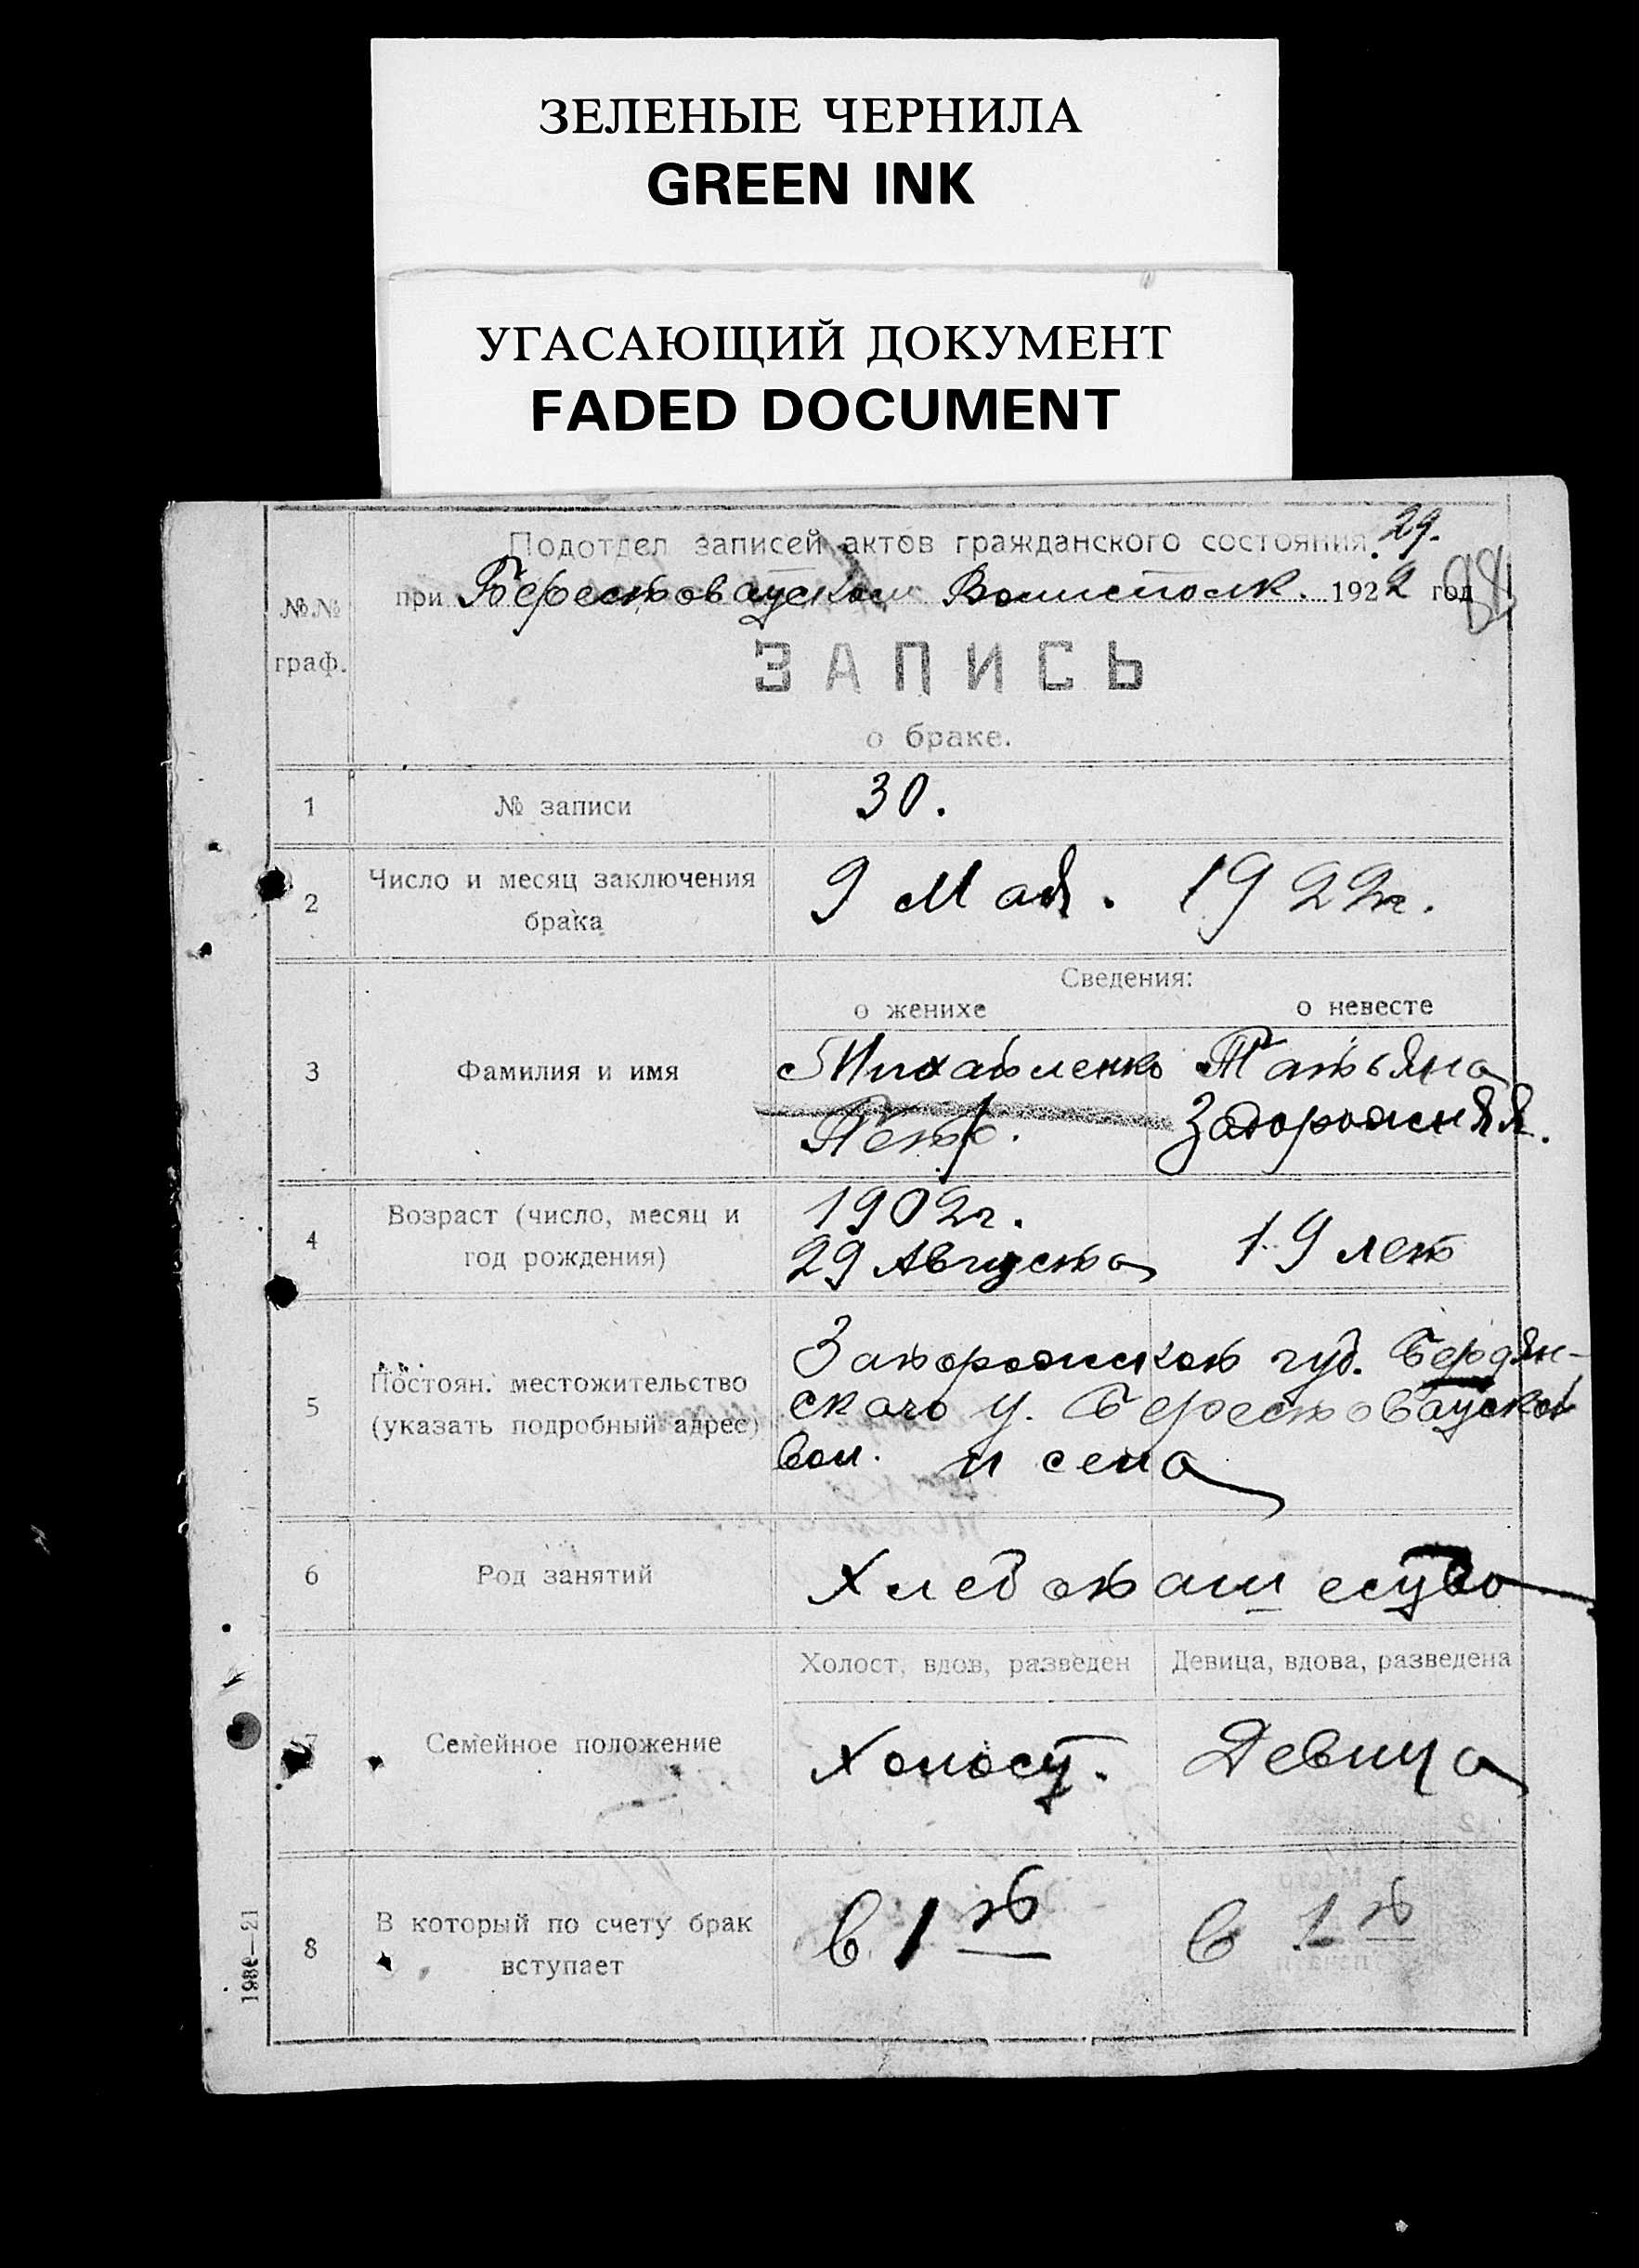 ЗЕЛЕНЫЕ ЧЕРНИЛА
GREEN INK
УГАСАЮЩИЙ ДОКУМЕНТ
FADED DOCUMENT
29.
Подотдел записей актов гражданского состояния
при Берестовацском Волисполк. 1922 год
№№
граф.
ЗАПИСЬ
о браке.
1 № записи 30.
2 Число и месяц заключения
брака
9 Мая. 1922г.
Сведения:
о женихе о невесте
3 Фамилия и имя
Михайленко Татьяна
Петр. Запорожняя.
4 Возраст (число, месяц и
год рождения)
1902г.
29 Августа 19 лет
5 Постоян. местожительство
(указать подробный адрес)
Запорожской губ. Бердян-
ского у. Берестовацской
вол. и села
6 Род занятий Хлебопашество
Холост, вдов, разведен Девица, вдова, разведена
7 Семейное положение Холост. Девица
8 В который по счету брак
вступает
в 1 й в 1 й